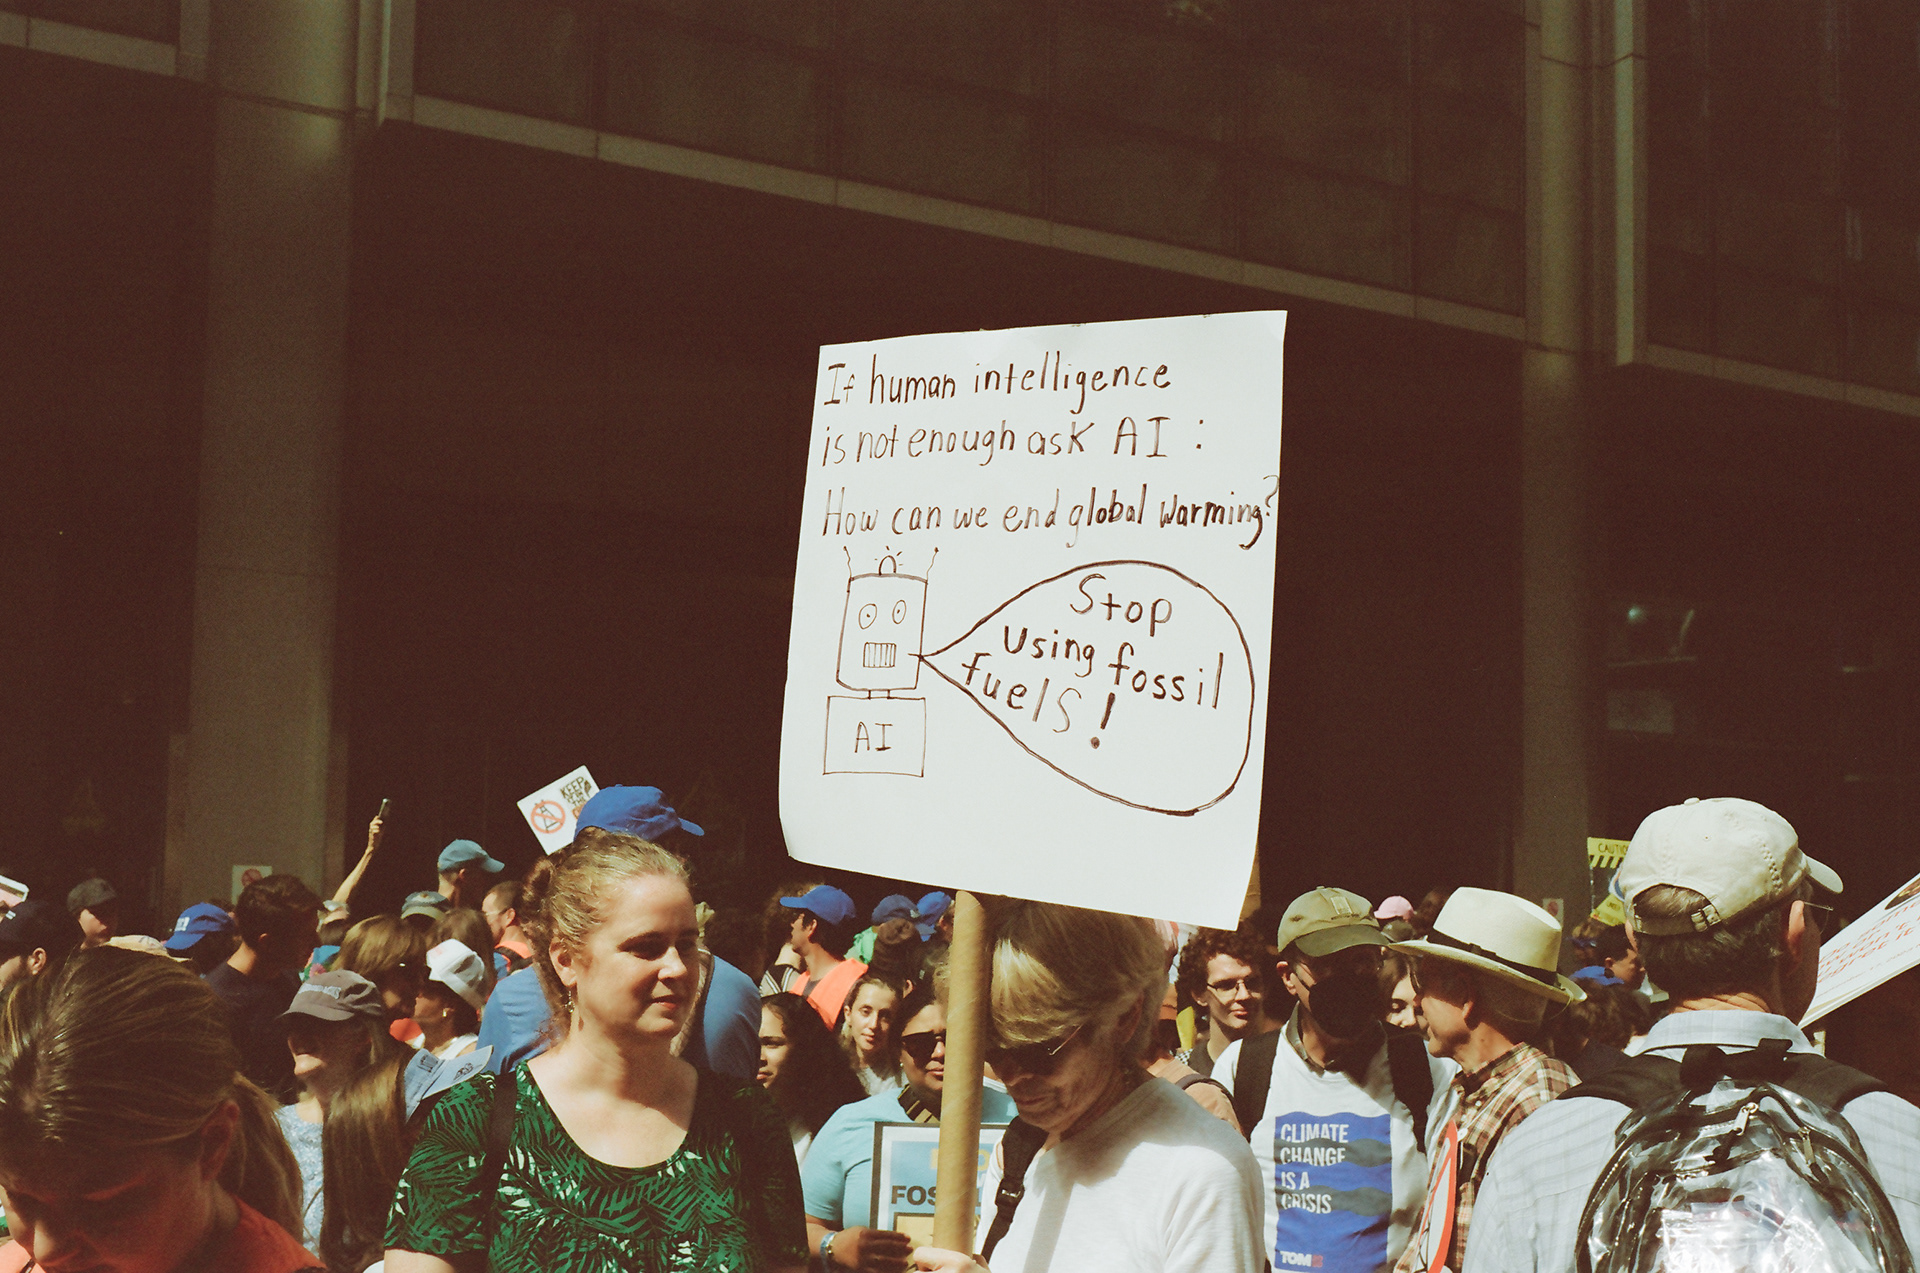 If human intelligence
is not enough ask AI :
How can we end global warming?
Stop
using fossil
fuels!
AI
KEEP
THE
CAUTIO
CLIMATE
CHANGE
IS A
CRISIS
TOM
FOS